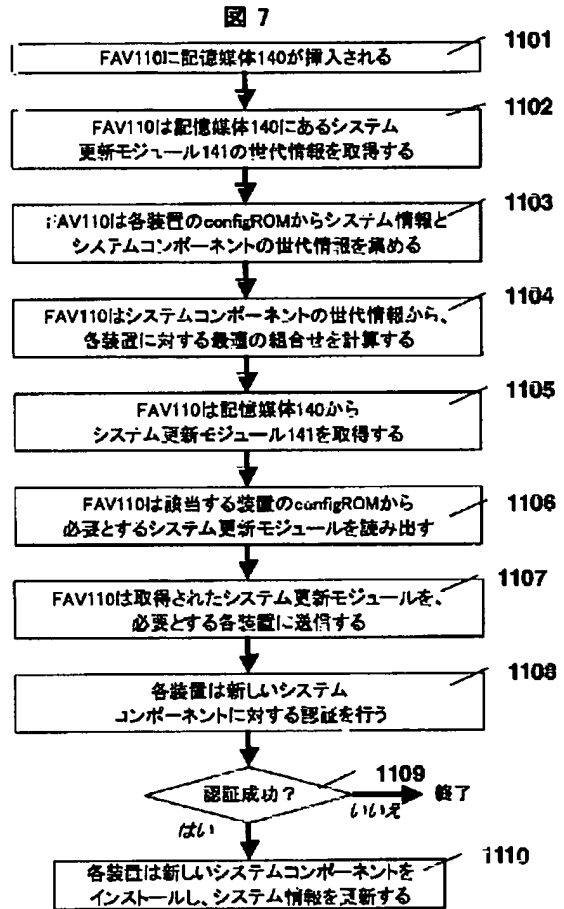 図 7
1101
FAV110に記憶媒体140が挿入される
1102
FAV110は記憶媒体140にあるシステム
更新モジュール141の世代情報を取得する
1103
FAV110は各装置のconfigROMからシステム情報と
システムコンポーネントの世代情報を集める
1104
FAV110はシステムコンポーネントの世代情報から、
各装置に対する最適の組合せを計算する
1105
FAV110は記憶媒体140から
システム更新モジュール141を取得する
1106
FAV110は該当する装置のconfigROMから
必要とするシステム更新モジュールを読み出す
1107
FAV110は取得されたシステム更新モジュールを、
必要とする各装置に送信する
1108
各装置は新しいシステム
コンポーネントに対する認証を行う
1109
認証成功？
終了
いいえ
はい
1110
各装置は新しいシステムコンポーネントを
インストールし、システム情報を更新する